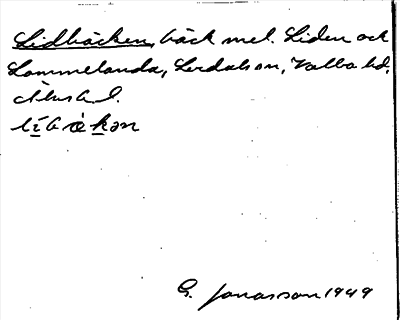 Lidbäcken, bäck mel. Liden och
Lommelanda, Lerdalson, Valbo hd,
Älvsb. l.
G. Jonasson 1949